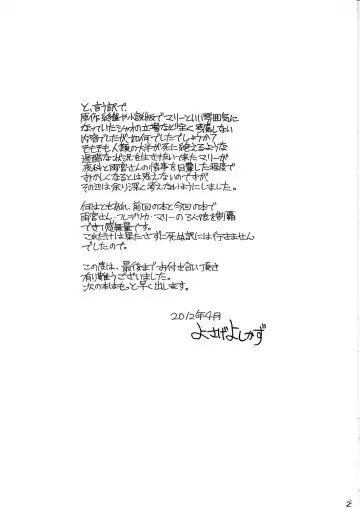 と、言う訳で
原作終盤や小説版でマリーといい雰囲気に
なっていたシャオの立場など全く考慮しない
内容でしたが如何でしたでしょうか？
そもそも人類の大半が死に絶えるような
過酷な状況を生き抜いて来たマリーが
夜科と雨宮さんの情事を目撃した程度で
おかしくなるとは思えないのですが
その辺は余り深く考えないようにしました。
何はともあれ、前回の本と今回の本で
雨宮さん、フレデリカ、マリーの3人娘を制覇
でき感無量です。
これだけは果たさずに死ぬ訳には行きません
でしたので。
この度は、最後までお付き合い頂き
有り難うございました。
次の本はもっと早く出します。
2012年4月
よさげよしかず
2